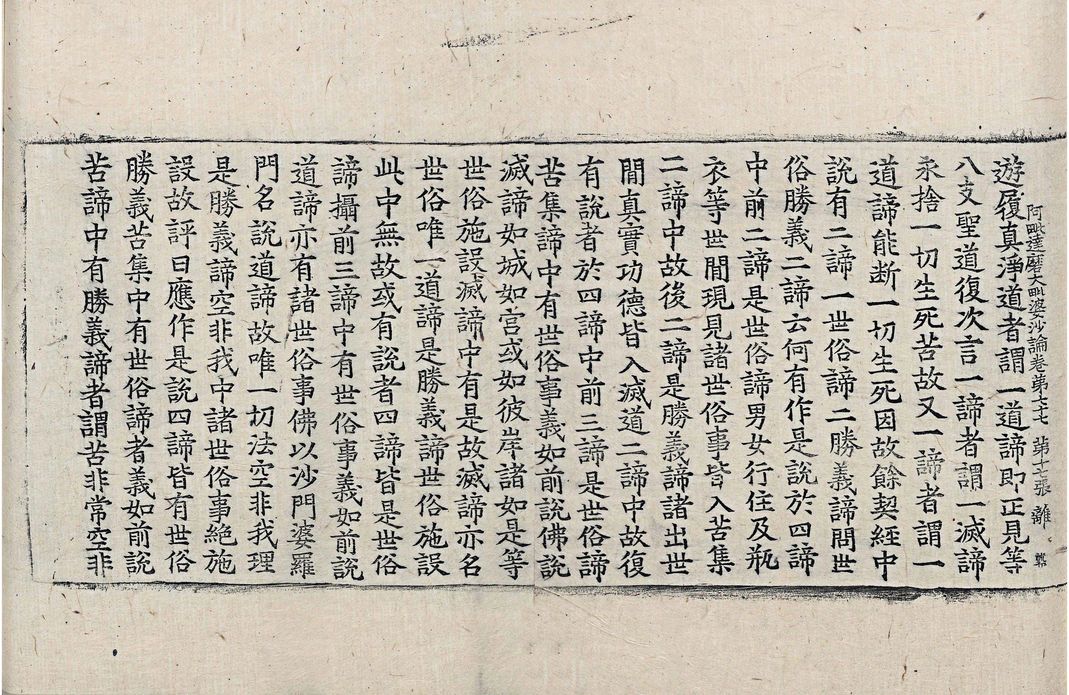 阿毗達磨大毗婆沙論卷第七十七 苐十七張 離
遊履真淨道者謂一道諦即正見等
八支聖道復次言一諦者謂一滅諦
永捨一切生死苦故又一諦者謂一
道諦能断一切生死因故餘契經中
説有二諦一世俗諦二勝義諦問世
俗勝義二諦云何有作是說於四諦
中前二諦是世俗諦男女行住及瓶
衣等世間現見諸世俗事皆入苦集
二諦中故後二諦是勝義諦諸出世
間真實功德皆入滅道二諦中故復
有說者於四諦中前三諦是世俗諦
苦集諦中有世俗事義如前說佛說
滅諦如城如宮或如彼岸諸如是等
世俗施設滅諦中有是故滅諦亦名
世俗唯一道諦是勝義諦世俗施設
此中無故或有說者四諦皆是世俗
諦攝前三諦中有世俗事義如前說
道諦亦有諸世俗事佛以沙門婆羅
門名說道諦故唯一切法空非我理
是勝義諦空非我中諸世俗事絶施
設故評曰應作是說四諦皆有世俗
勝義苦集中有世俗諦者義如前說
苦諦中有勝義諦者謂苦非常空非